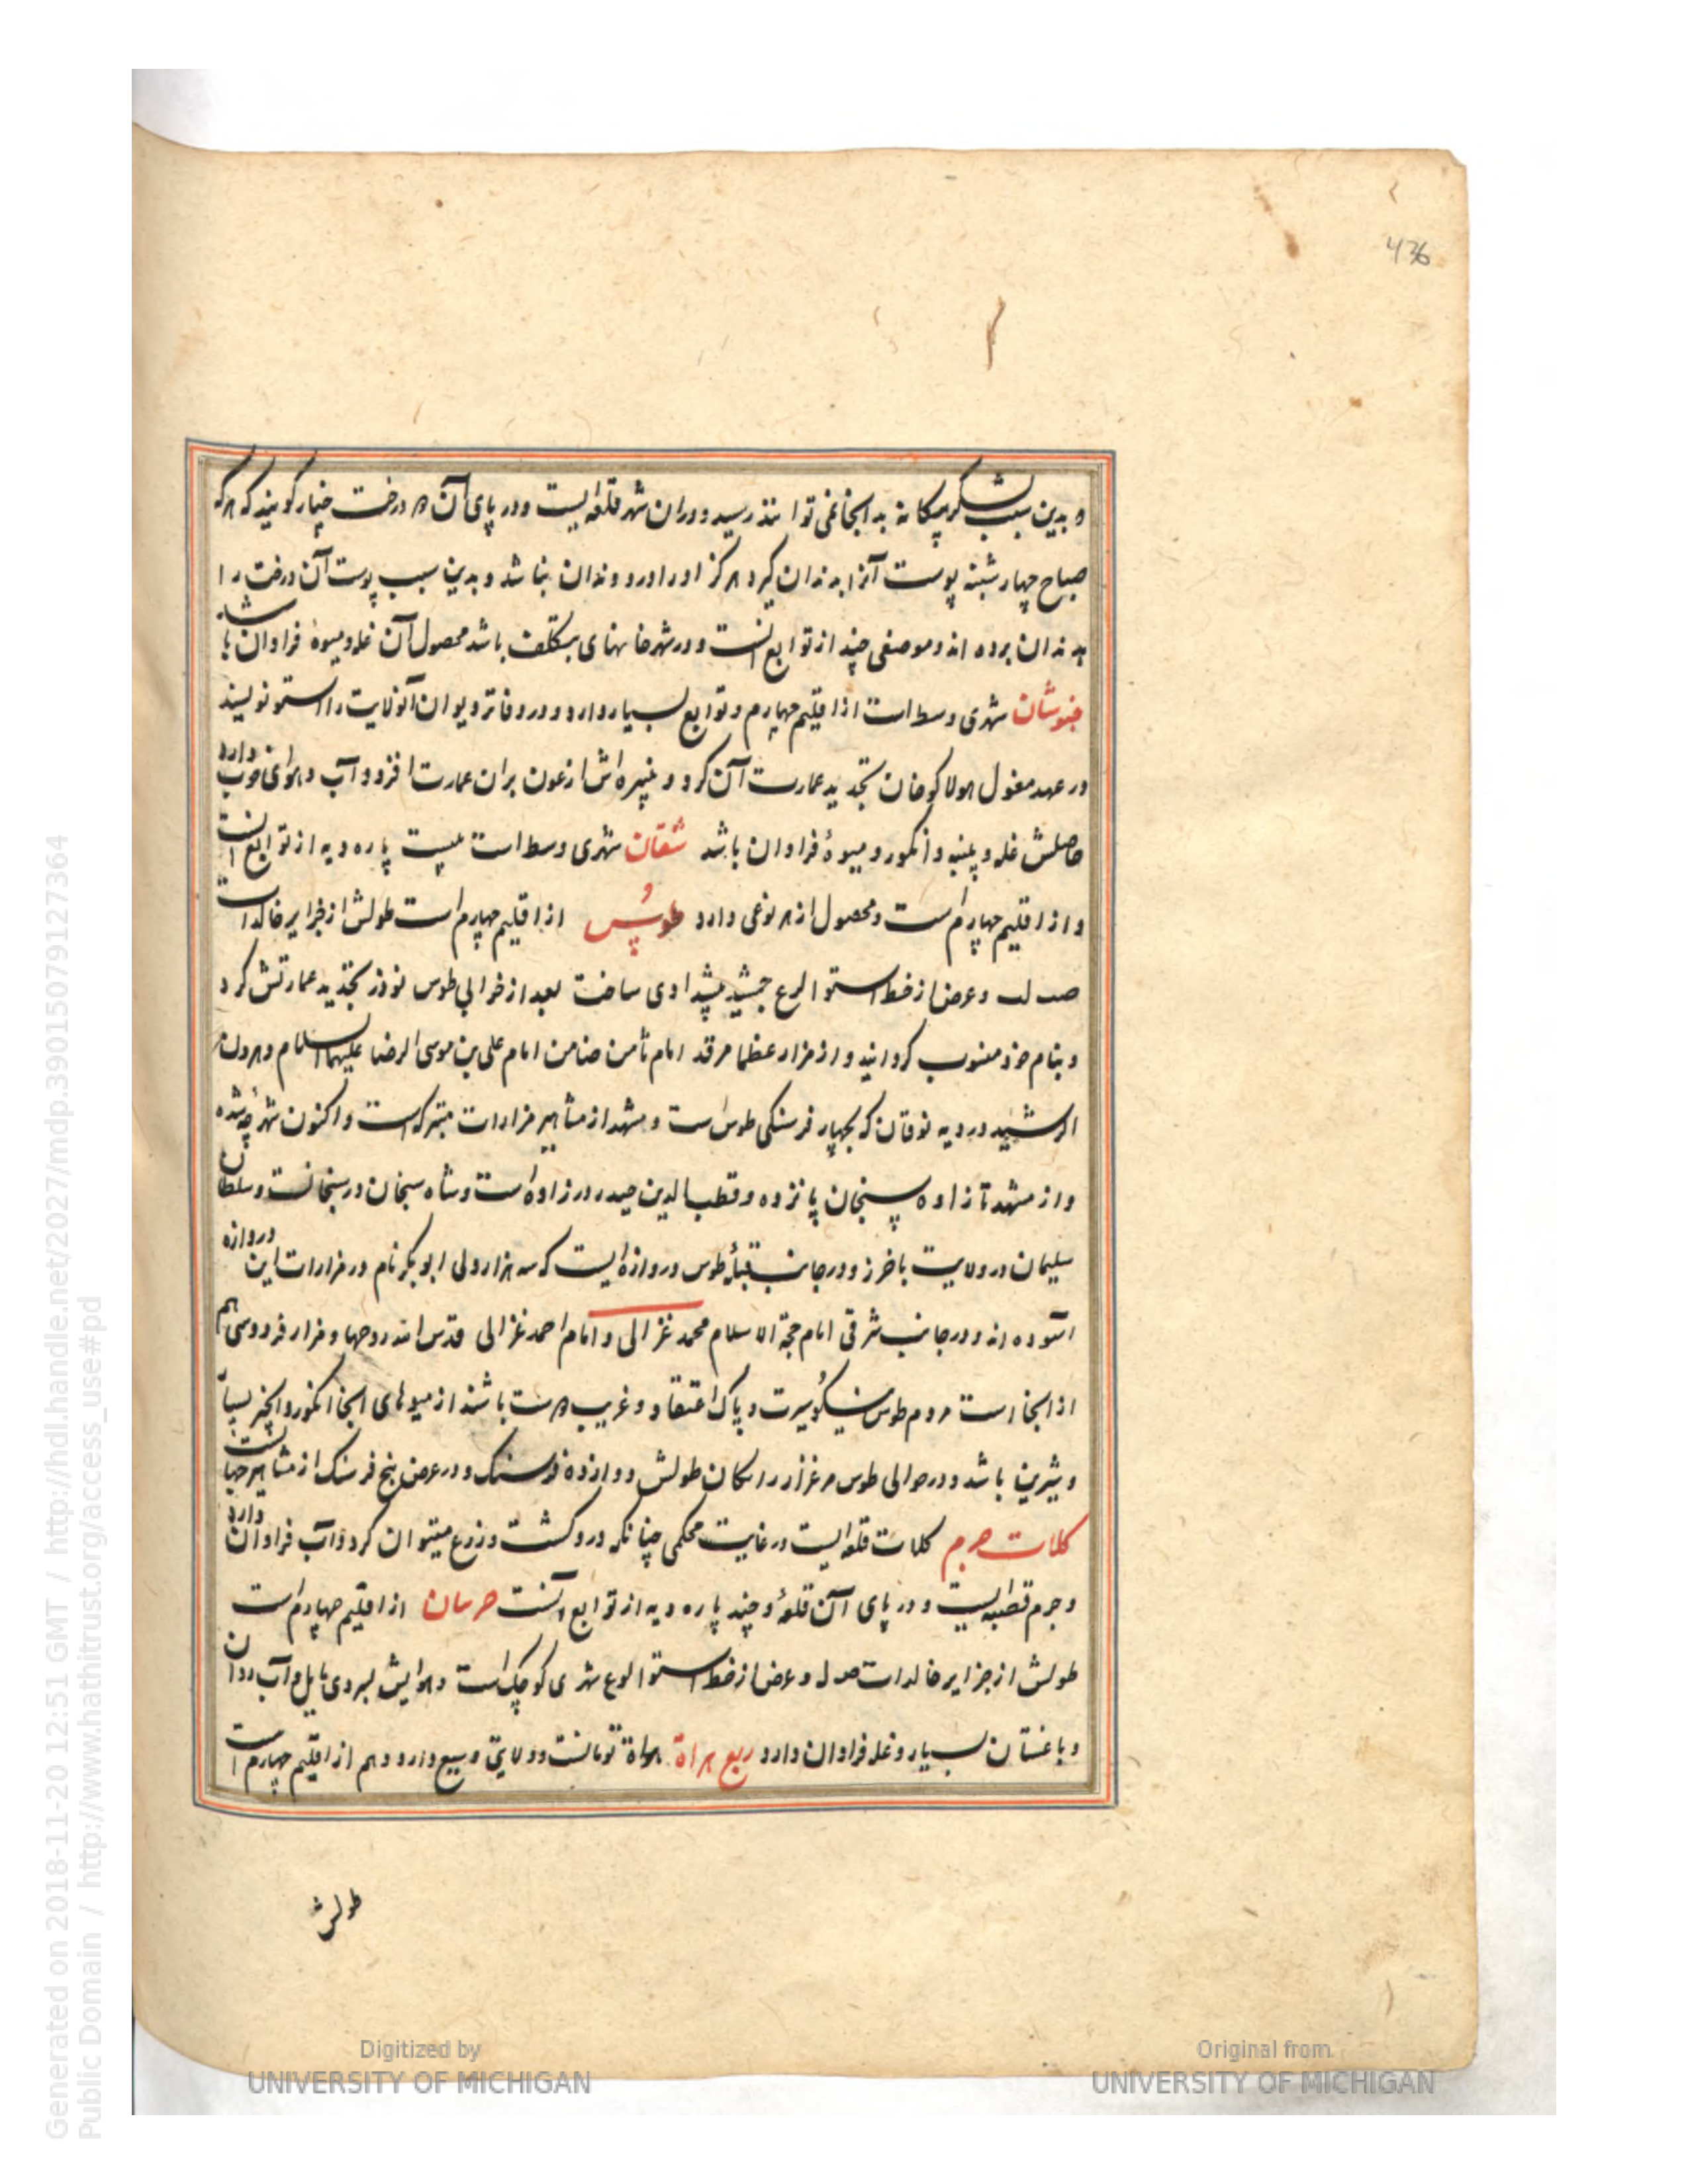 436
و بدین سبب لشکر بیگانه بدانجا نمی تواند رسید و دران شهر قلعه ایست و در پای آن ده درخت چنار گویند که هر که
صباح چهارشنبه پوست آنرا بدندان گیرد هرگز او را درد دندان نباشد و بدین سبب پوست آن درخت را
بدندان برده اند و موضعی چند از توابع انست و در شهر خانهای بتکلف باشد محصول آن غله و میوه فراوان باشد
خبوشان شهری وسط است از اقلیم چهارم و توابع بسیار دارد و در دفاتر دیوان آنولایت را استو نویسند
در عهد مغول هولاکو خان تجدید عمارت آن کرد و نبیره اش ارغون بران عمارت افزود و آب و هوای خوب دارد
حاصلش غله و پنبه و انگور و میوهٔ فراوان باشد شقان شهری وسط است بیست پاره دیه از توابع انست
و از اقلیم چهارم است و محصول از هر نوعی دارد طوس از اقلیم چهارم است طولش از جزایر خالدات
صب لب و عرض از خط استوا لرع جمشید پیشدادی ساخت بعد از خرابی طوس نوذر تجدید عمارتش کرد
و بنام خود منسوب کردانید و از مزار عظما مرقد امام ثامن ضامن امام علی بن موسی الرضا علیهما السلام و هرون
الرشید در دیه نوقان که بچهار فرسنکی طوس است و مشهد از مشاهیر مزارات متبرکه است و اکنون شهرچه شده
و از مشهد تا زاوه سنجان پانزده و قطب الدین حیدر در زاوه است و شاه سنجان در سنجانست و سلطان
سلیمان در ولایت باخرز و در جانب قبلهٔ طوس دروازه ایست که سه هزار ولی ابو بکر نام در مزارات این دروازه
آسوده اند و در جانب شرقی امام حجة الاسلام محمد غزالی و امام احمد غزالی قدس الله روحها و مزار فردوسی هم
از انجا است مردم طوس نیکو سیرت و پاک اعتقاد و غریب دوست باشند از میوهای انجا انگور و انجیر بسیار
و شیرین باشد و در حوالی طوس مرغزار رادکان طولش دوازده فرسنک و در عرض پنج فرسنک از مشاهیر جهانست
کلات جرم کلات قلعه ایست در غایت محکمی چنانکه درو کشت و زرع میتوان کرد و آب فراوان دارد
و جرم قصبه ایست و در پای آن قلعه و چند پاره دیه از توابع آنست مرسان از اقلیم چهارم است
طولش از جزایر خالدات صد ل و عرض از خط استوا لوع شهری کوچک است و هوایش بسردی مایل و آب روان
و باغستان بسیار و غله فراوان دارد ربع هراة هراة تومانست و ولایتی وسیع دارد و هم از اقلیم چهارم است
طولش
Generated on 2018-11-20 12:51 GMT / http://hdl.handle.net/2027/mdp.39015079127364
Public Domain / http://www.hathitrust.org/access_use#pd
Digitized by
UNIVERSITY OF MICHIGAN
Original from
UNIVERSITY OF MICHIGAN